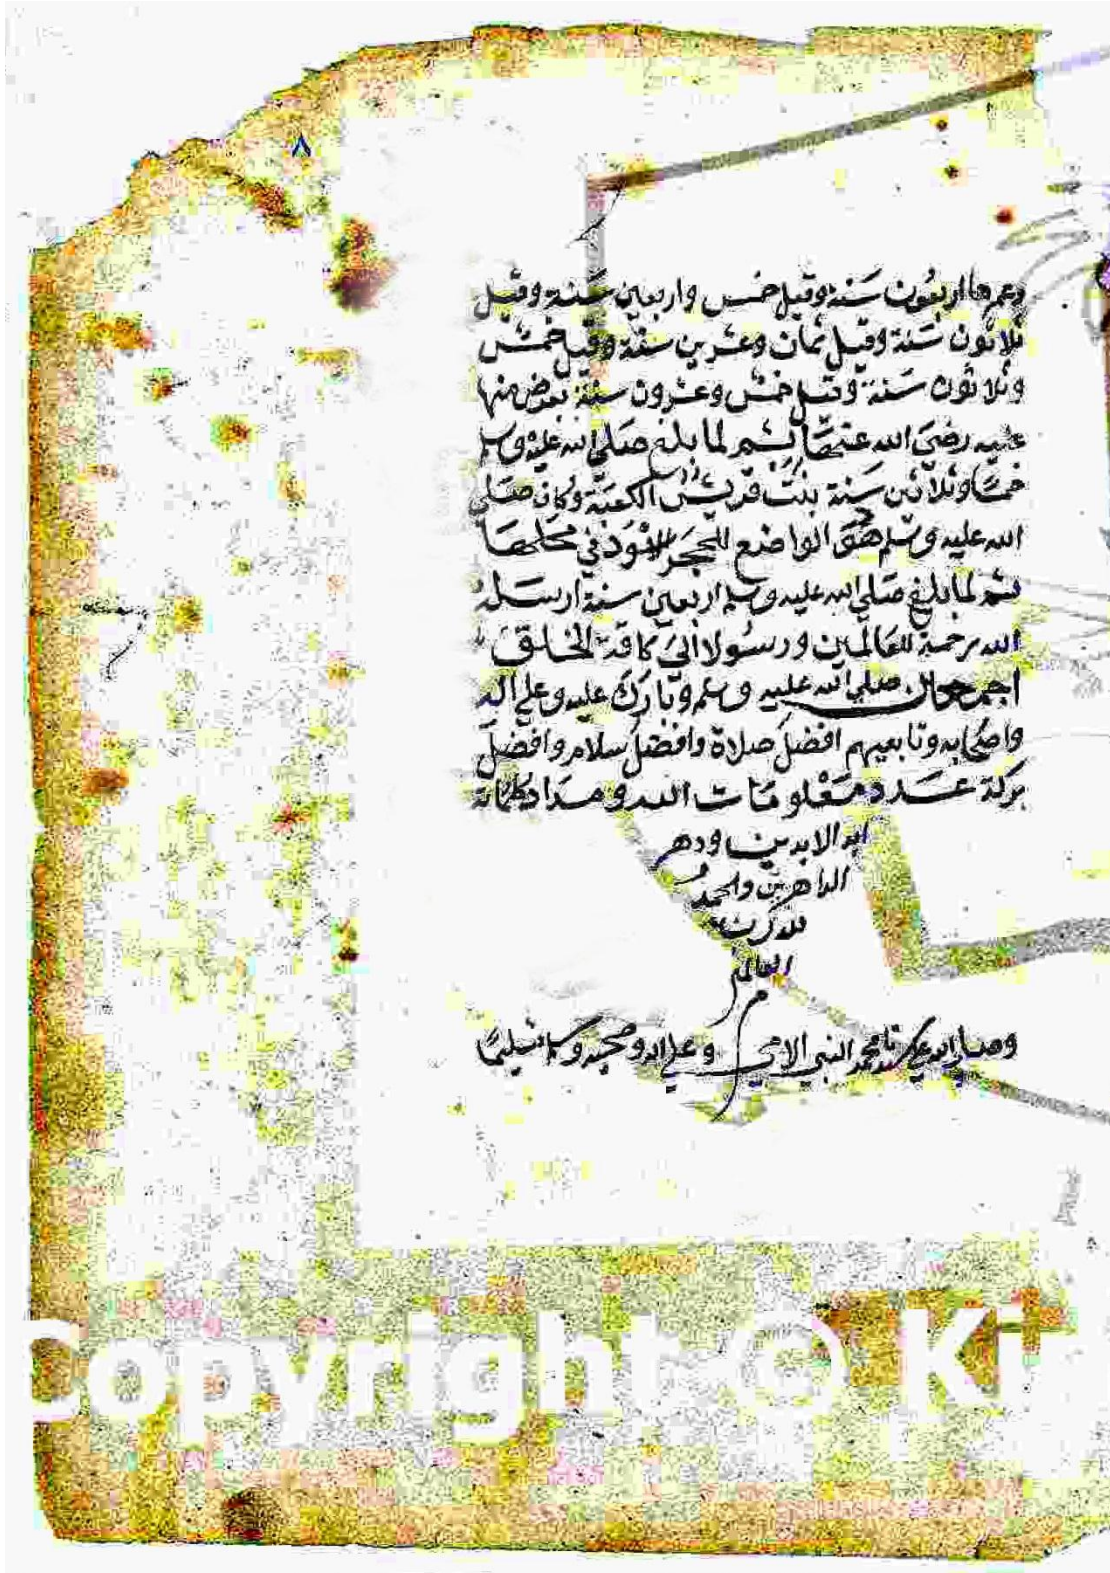 ٨
وعمرها اربعون سنة وقيل خمس واربعين سنة وقيل
ثلاثون سنة وقيل ثمان وعشرين سنة وقيل خمس
وثلاثون سنة وقيل خمس وعشرون سنة بعرض منها
عليه رضي الله عنها ثم لما بلغ صلى الله عليه وسلم
خمسا وثلاثين سنة بنت قريش الكعبة وكان صلى
الله عليه وسلم هو الواضع للحجر الاسود في محلها
ثم لما بلغ صلى الله عليه وسلم اربعين سنة ارسله
الله رحمة للعالمين ورسولا الى كافة الخلق
اجمعين صلى الله عليه وسلم وبارك عليه وعلى اله
واصحابه وتابعيهم افضل صلاة وافضل سلام وافضل
بركة عدد معلومات الله ومداد كلماته
ابد الابدين ودهر
الداهرين والحمد
لله رب
العالمين
م
وصلى الله على سيدنا محمد النبي الامي وعلى اله وصحبه وسلم تسليما
Copyright © Ki